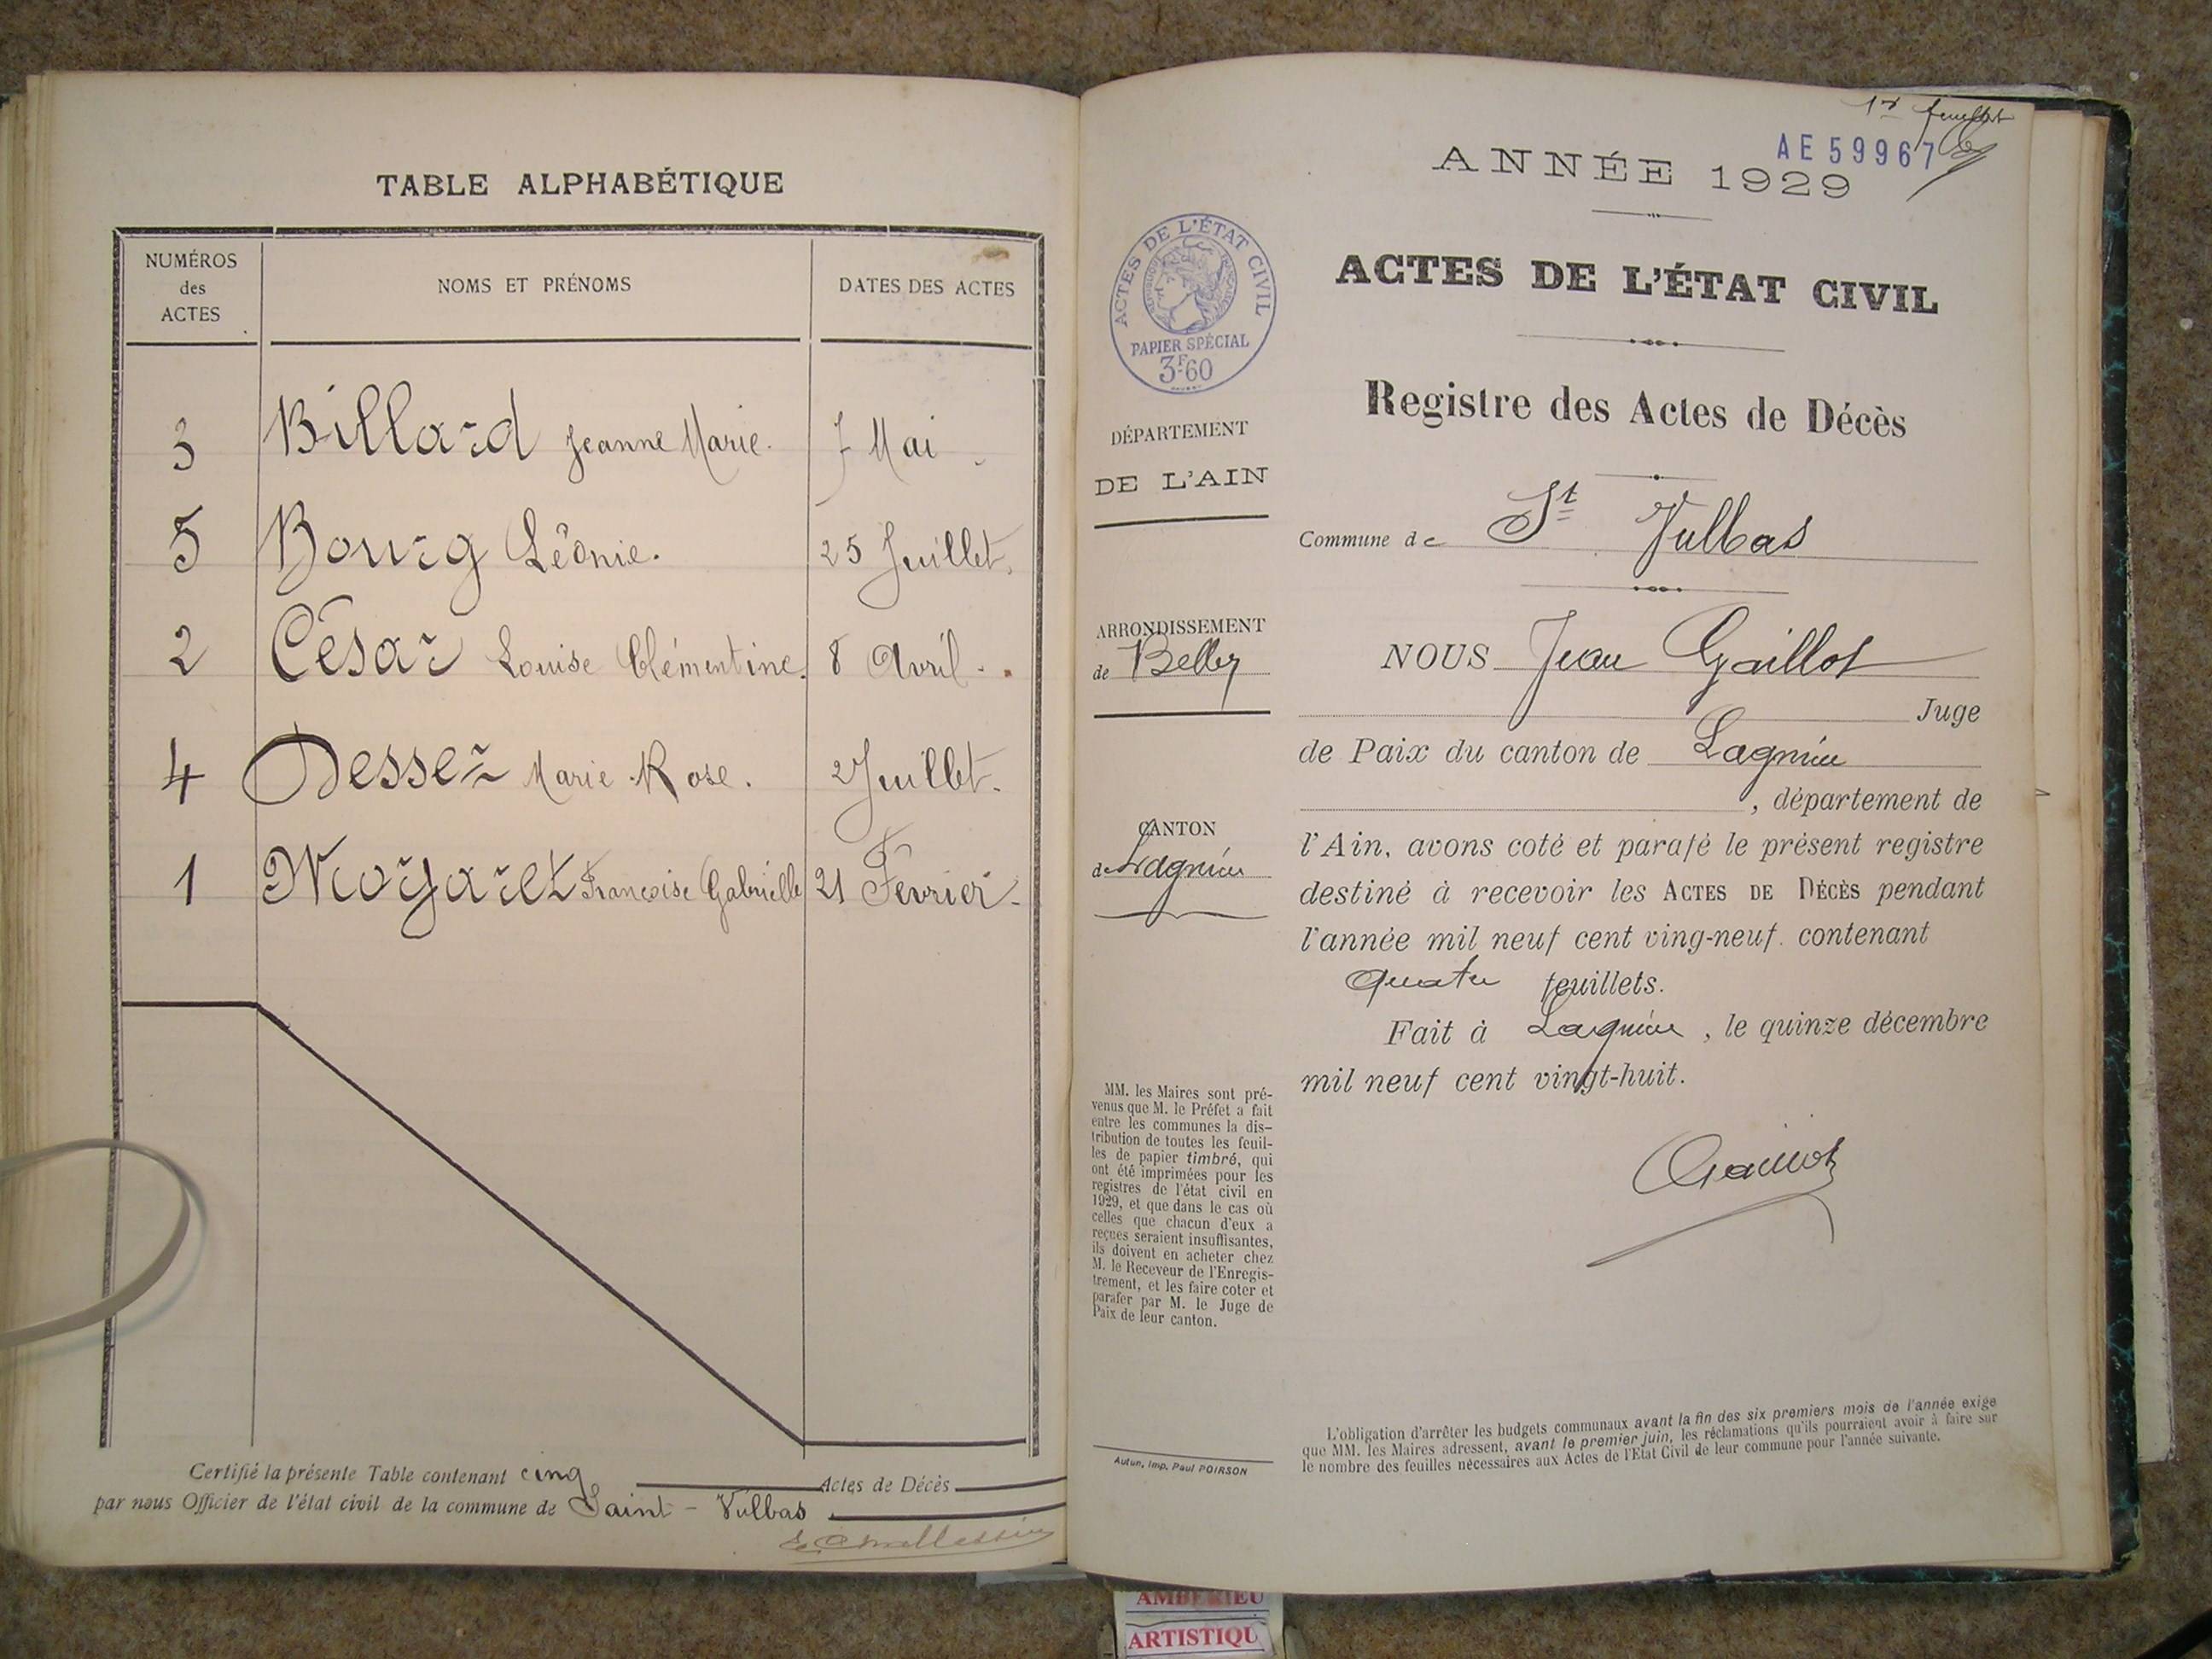 TABLE ALPHABÉTIQUE
NUMÉROS
des
ACTES
NOMS ET PRÉNOMS
DATES DES ACTES
3 Billard Jeanne Marie. 7 Mai
5 Bourg Léonie. 25 Juillet.
2 César Louise Clémentine. 8 Avril.
4 Dessez Marie Rose. 2 Juillet.
1 Françoise Gabrielle 21 Février.
Certifié la présente Table contenant cinq Actes de Décès
par nous Officier de l'état civil de la commune de Saint-Vulbas
1er feuillet
AE 59967
ANNÉE 1929
ACTES DE L'ÉTAT CIVIL
PAPIER SPÉCIAL
3F60
ACTES DE L'ÉTAT CIVIL
Registre des Actes de Décès
DÉPARTEMENT
DE L'AIN
Commune de St Vulbas
ARRONDISSEMENT
de Belley
NOUS Jean Gaillot
Juge
de Paix du canton de Lagnieu
, département de
CANTON
de Lagnieu
l'Ain, avons coté et parafé le présent registre
destiné à recevoir les ACTES DE DÉCÈS pendant
l'année mil neuf cent ving-neuf. contenant
quatre feuillets.
Fait à Lagnieu, le quinze décembre
mil neuf cent vingt-huit.
Gaillot
MM. les Maires sont pré-
venus que M. le Préfet a fait
entre les communes la dis-
tribution de toutes les feuil-
les de papier timbré, qui
ont été imprimées pour les
registres de l'état civil en
1929, et que dans le cas où
celles que chacun d'eux a
reçues seraient insuffisantes,
ils doivent en acheter chez
M. le Receveur de l'Enregis-
trement, et les faire coter et
parafer par M. le Juge de
Paix de leur canton.
Autun, Imp. Paul POIRSON
L'obligation d'arrêter les budgets communaux avant la fin des six premiers mois de l'année exige
que MM. les Maires adressent, avant le premier juin, les réclamations qu'ils pourraient avoir à faire sur
le nombre des feuilles nécessaires aux Actes de l'Etat Civil de leur commune pour l'année suivante.
AMBERIEU
ARTISTIQU